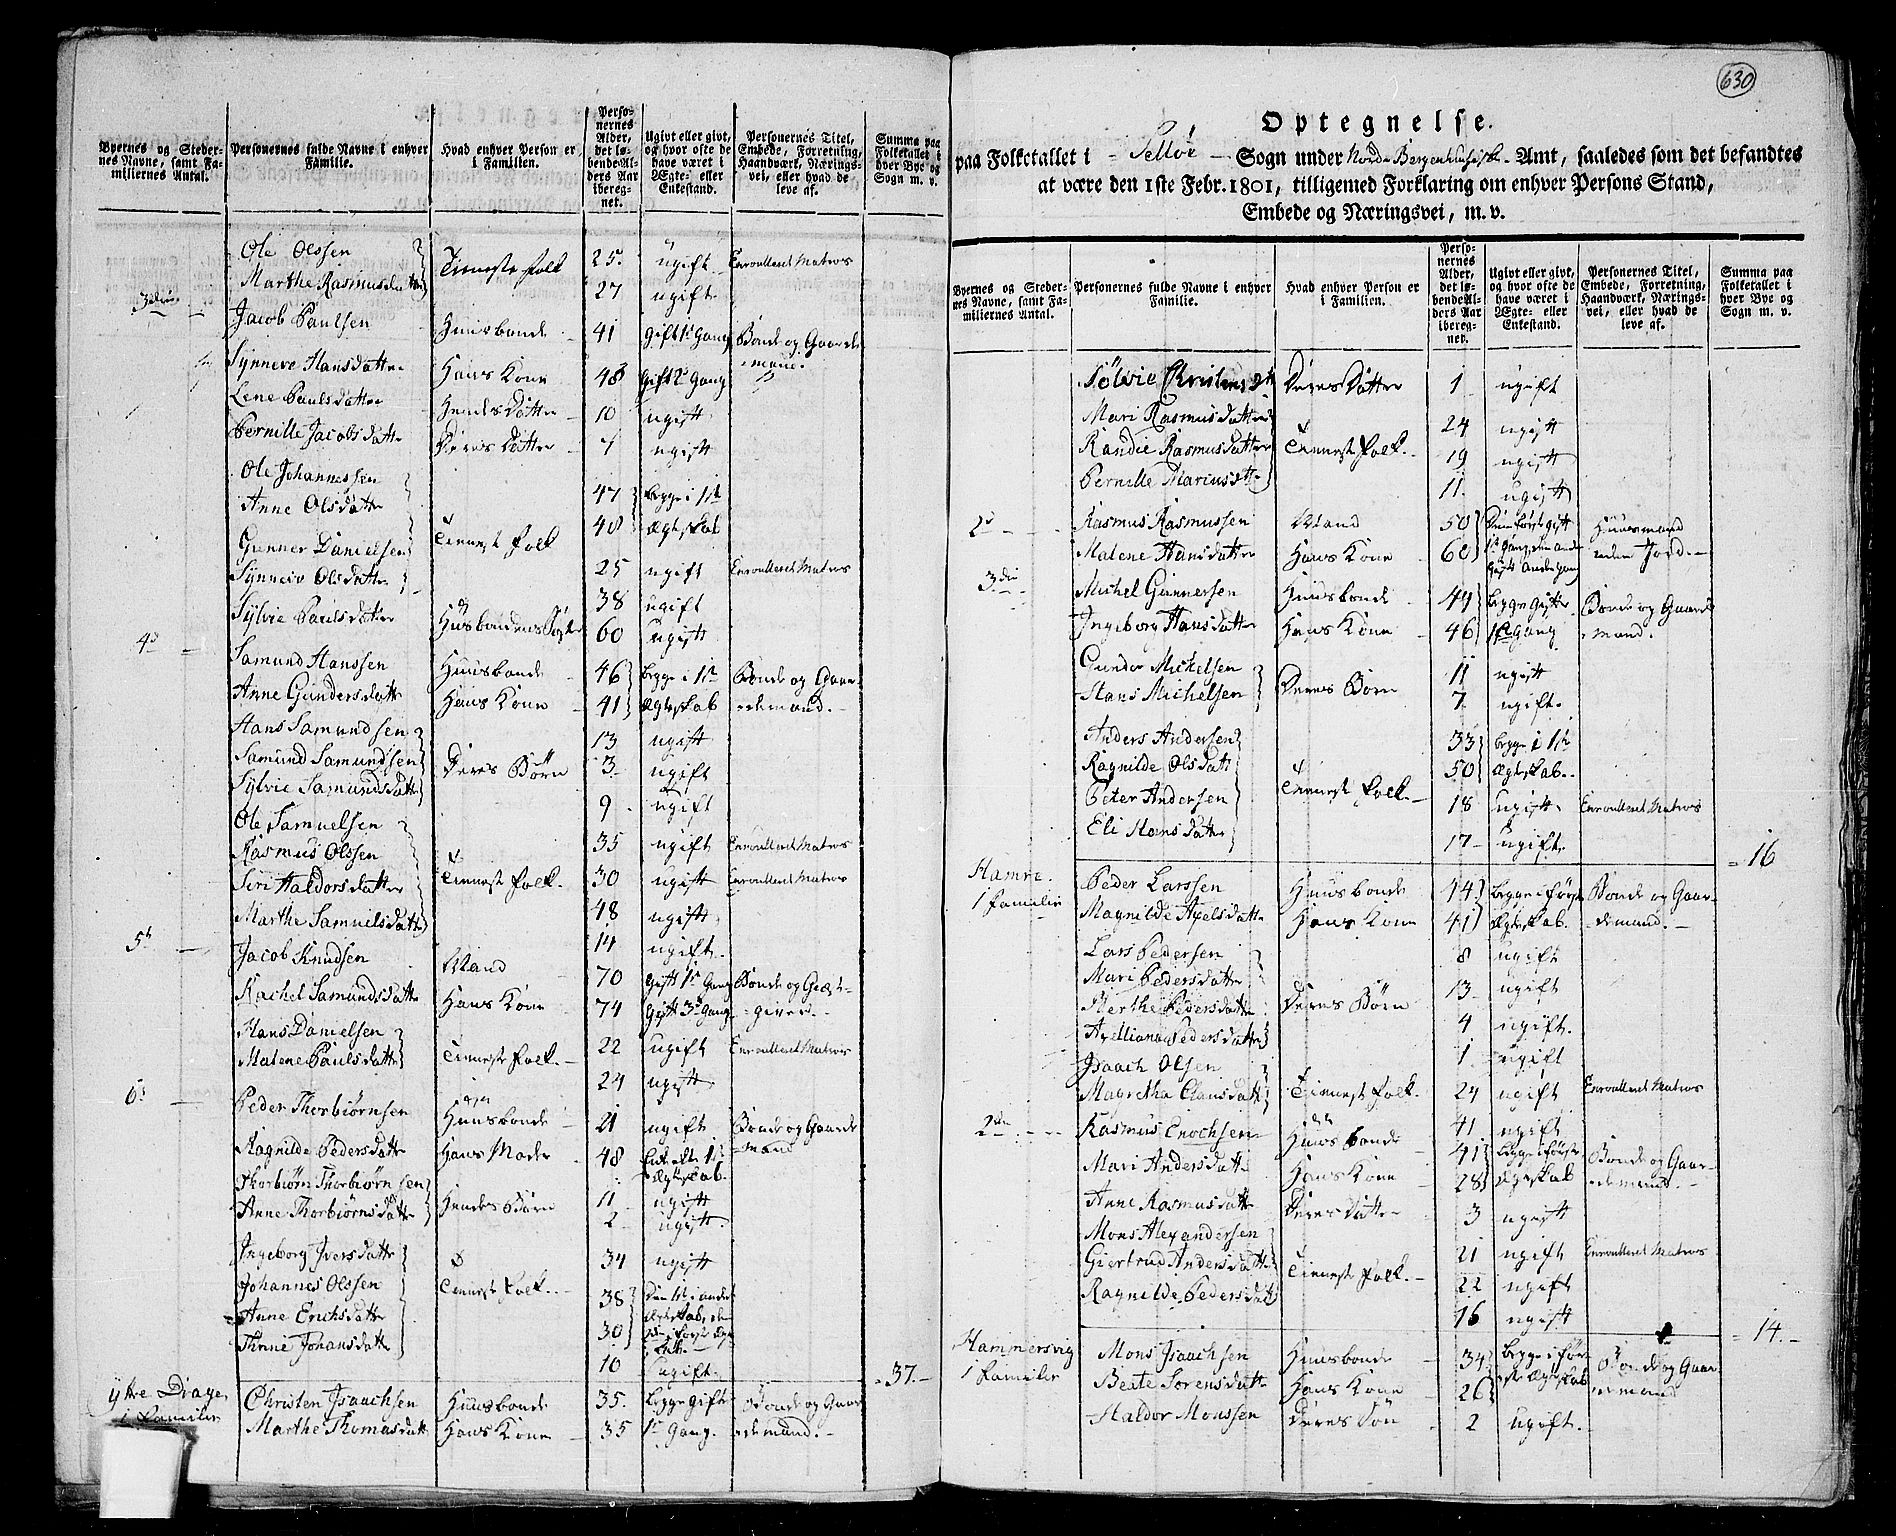 Byernes og Steder-
nes Navne, samt Fa-
miliernes Antal.
Personernes fulde Navne i enhver
Familie.
Hvad enhver Person er
i Familien.
Perso-
nernes
Alder,
det lø-
bende Al-
ders Aar
ibereg-
net.
Ugivt eller givt,
og hvor ofte de
have været i
Ægte- eller
Enkestand.
Personernes Titel,
Embede, Forretning,
Haandværk, Nærings-
vei, eller hvad de
leve af.
Summa paa
Folketallet i
hver Bye og
Sogn m. v.
Ole Olssen Tieneste folk 25. ugift Enroulleret Matros
Marthe Rasmusdatter 27 ugift
3die Jacob Paulsen Huusbonde 41 gift 1ste Gang Bonde og Gaarde
Synneve Hansdatter Hans Kone 48 Gift 2. Gang mand.
Lene Paulsdatter Hendes Datter 10 ugift
Pernille Jacobsdatter Deres Datter ugift
Ole Johannessen 47 begge i 1ste
Anne Olsdatter 40 Ægteskab
Tienest folk
Gunner Danielsen 25 ugift Enroulleret Matros
Synneve Olsdatter 38 ugift
Sylvie Paulsdatter Husbondens Søster 60 ugift
4de Samund Hanssen Huusbonde 46 begge i 1ste Bonde og Gaar-
Anne Gundersdatter Hans Kone 41 Ægteskab demand.
Hans Samundsen 13 ugift
Samund Samundsen Deres Børn 3 ugift
Sylvie Samundsdatter 9 ugift
Ole Samuelsen 35 ugift Enroulleret Matros
Rasmus Olssen Tienest folk. 30 ugift Enroulleret Matros
Siri Haldorsdatter 48 ugift
Marthe Samuelsdatter 14 ugift.
5te Jacob Knudsen Mand 70 gift 1ste Gang Bonde og Giest-
Rachel Samundsdatter Hans Kone 74 Gift 3de Gang giver.
Hans Danielsen 22 ugift Enroulleret Matros
Malene Paulsdatter Tienest folk. 24 ugift
6te Peder Thorbiørnsen Huusbonde 21 ugift Bonde og Gaarde
Ragnilde Pedersdatter Hans Moder 48 Enke efter 1ste mand
Ægteskab.
Thorbiørn Thorbiørnsen Hendes Børn 11 ugift
Anne Thorbiørnsdatter 2 ugift.
Ingeborg Iversdatter 34 ugift
Johannes Olssen Tienest folk. 38 Den 1ste i andet
Anne Erichsdatter 30 Ægteskab, den
Johansdatter 10 ugift.
37.
Yttre
1 Familie Christen Isaachsen Huusbonde 35. begge gift Bonde og Gaar
Marthe Thomasdatter Hans Kone 35 1ste Gang. demand.
630
Optegnelse.
paa Folketallet i Selløe Sogn under Nordre Bergenhuusiske Amt, saaledes som det befandtes
at være den 1ste Febr. 1801, tilligemed Forklaring om enhver Persons Stand,
Embede og Næringsvei, m. v.
Byernes og Steder-
nes Navne, samt Fa-
miliernes Antal.
Personernes fulde Navne i enhver
Familie.
Hvad enhver Person er
i Familien.
Perso-
nernes
Alder,
det lø-
bende Al-
ders Aar
ibereg-
net.
Ugivt eller givt,
og hvor ofte de
have været i
Ægte- eller
Enkestand.
Personernes Titel,
Embede, Forretning,
Haandværk, Nærings-
vei, eller hvad de
leve af.
Summa paa
Folketallet i
hver Bye og
Sogn m. v.
Sølvie Christensdtr Deres Datter 1 ugift
Mari Rasmusdatter 24 ugift
Randie Rasmusdatter Tienest folk. 19 ugift
Pernille Mariusdtr 11. ugift
2de Rasmus Rasmussen Mand 50 Den første gift Huusmand
Malene Hansdatter Hans Kone 60 1ste Gang, den anden uden Jord.
Gift anden Gang
3die Michel Gunnersen Huusbonde 44 begge Gifte Bonde og Gaard
Ingeborg Hansdatter Hans Kone 46 1ste Gang mand.
Gunder Michelsen Deres Børn 11 ugift
Hans Michelsen 7 ugift.
Anders Andersen 33 begge i 1ste
Ragnilde Olsdatt 50 Ægteskab.
Peter Andersen Tienest folk. 18 ugift Enroulleret Matros
Eli Hansdatter 17 ugift.
16
Hamre.
1 Familie Peder Larssen Huusbonde 44 begge i første Bonde og Gaar-
Magnilde Axelsdatter Hans Kone 41 Ægteskab. demand.
Lars Pedersen 8 ugift
Mari Pedersdatter 13 ugift
Merthe Pedersdatter Deres Børn 4 ugift.
Axelliana Pedersdatter 1 ugift
Isaach Olsen 24 ugift Enroulleret Matros
Magretha Clausdatt Tienest folk. 41 ugift
2den Rasmus Enochsen Huusbonde 41 begge i første Bonde og Gaar-
Mari Andersdatter Hans Kone 28 Ægteskab demand.
Anne Rasmusdatter Deres Datter 3 ugift
Mons Alexandersen 21 ugift Enroulleret Matros
Giertrud Andersdatter Tienest folk. 22 ugift
Ragnilde Pedersdatt 16 ugift
14.
Hammersvig
1 Familie Mons Isaachsen Huusbonde 34 begge i før Bonde og Gaar
Berte Sorensdatter Hans Kone 26 ste Ægteskab demand
Haldor Monssen Deres Søn 2 ugift.